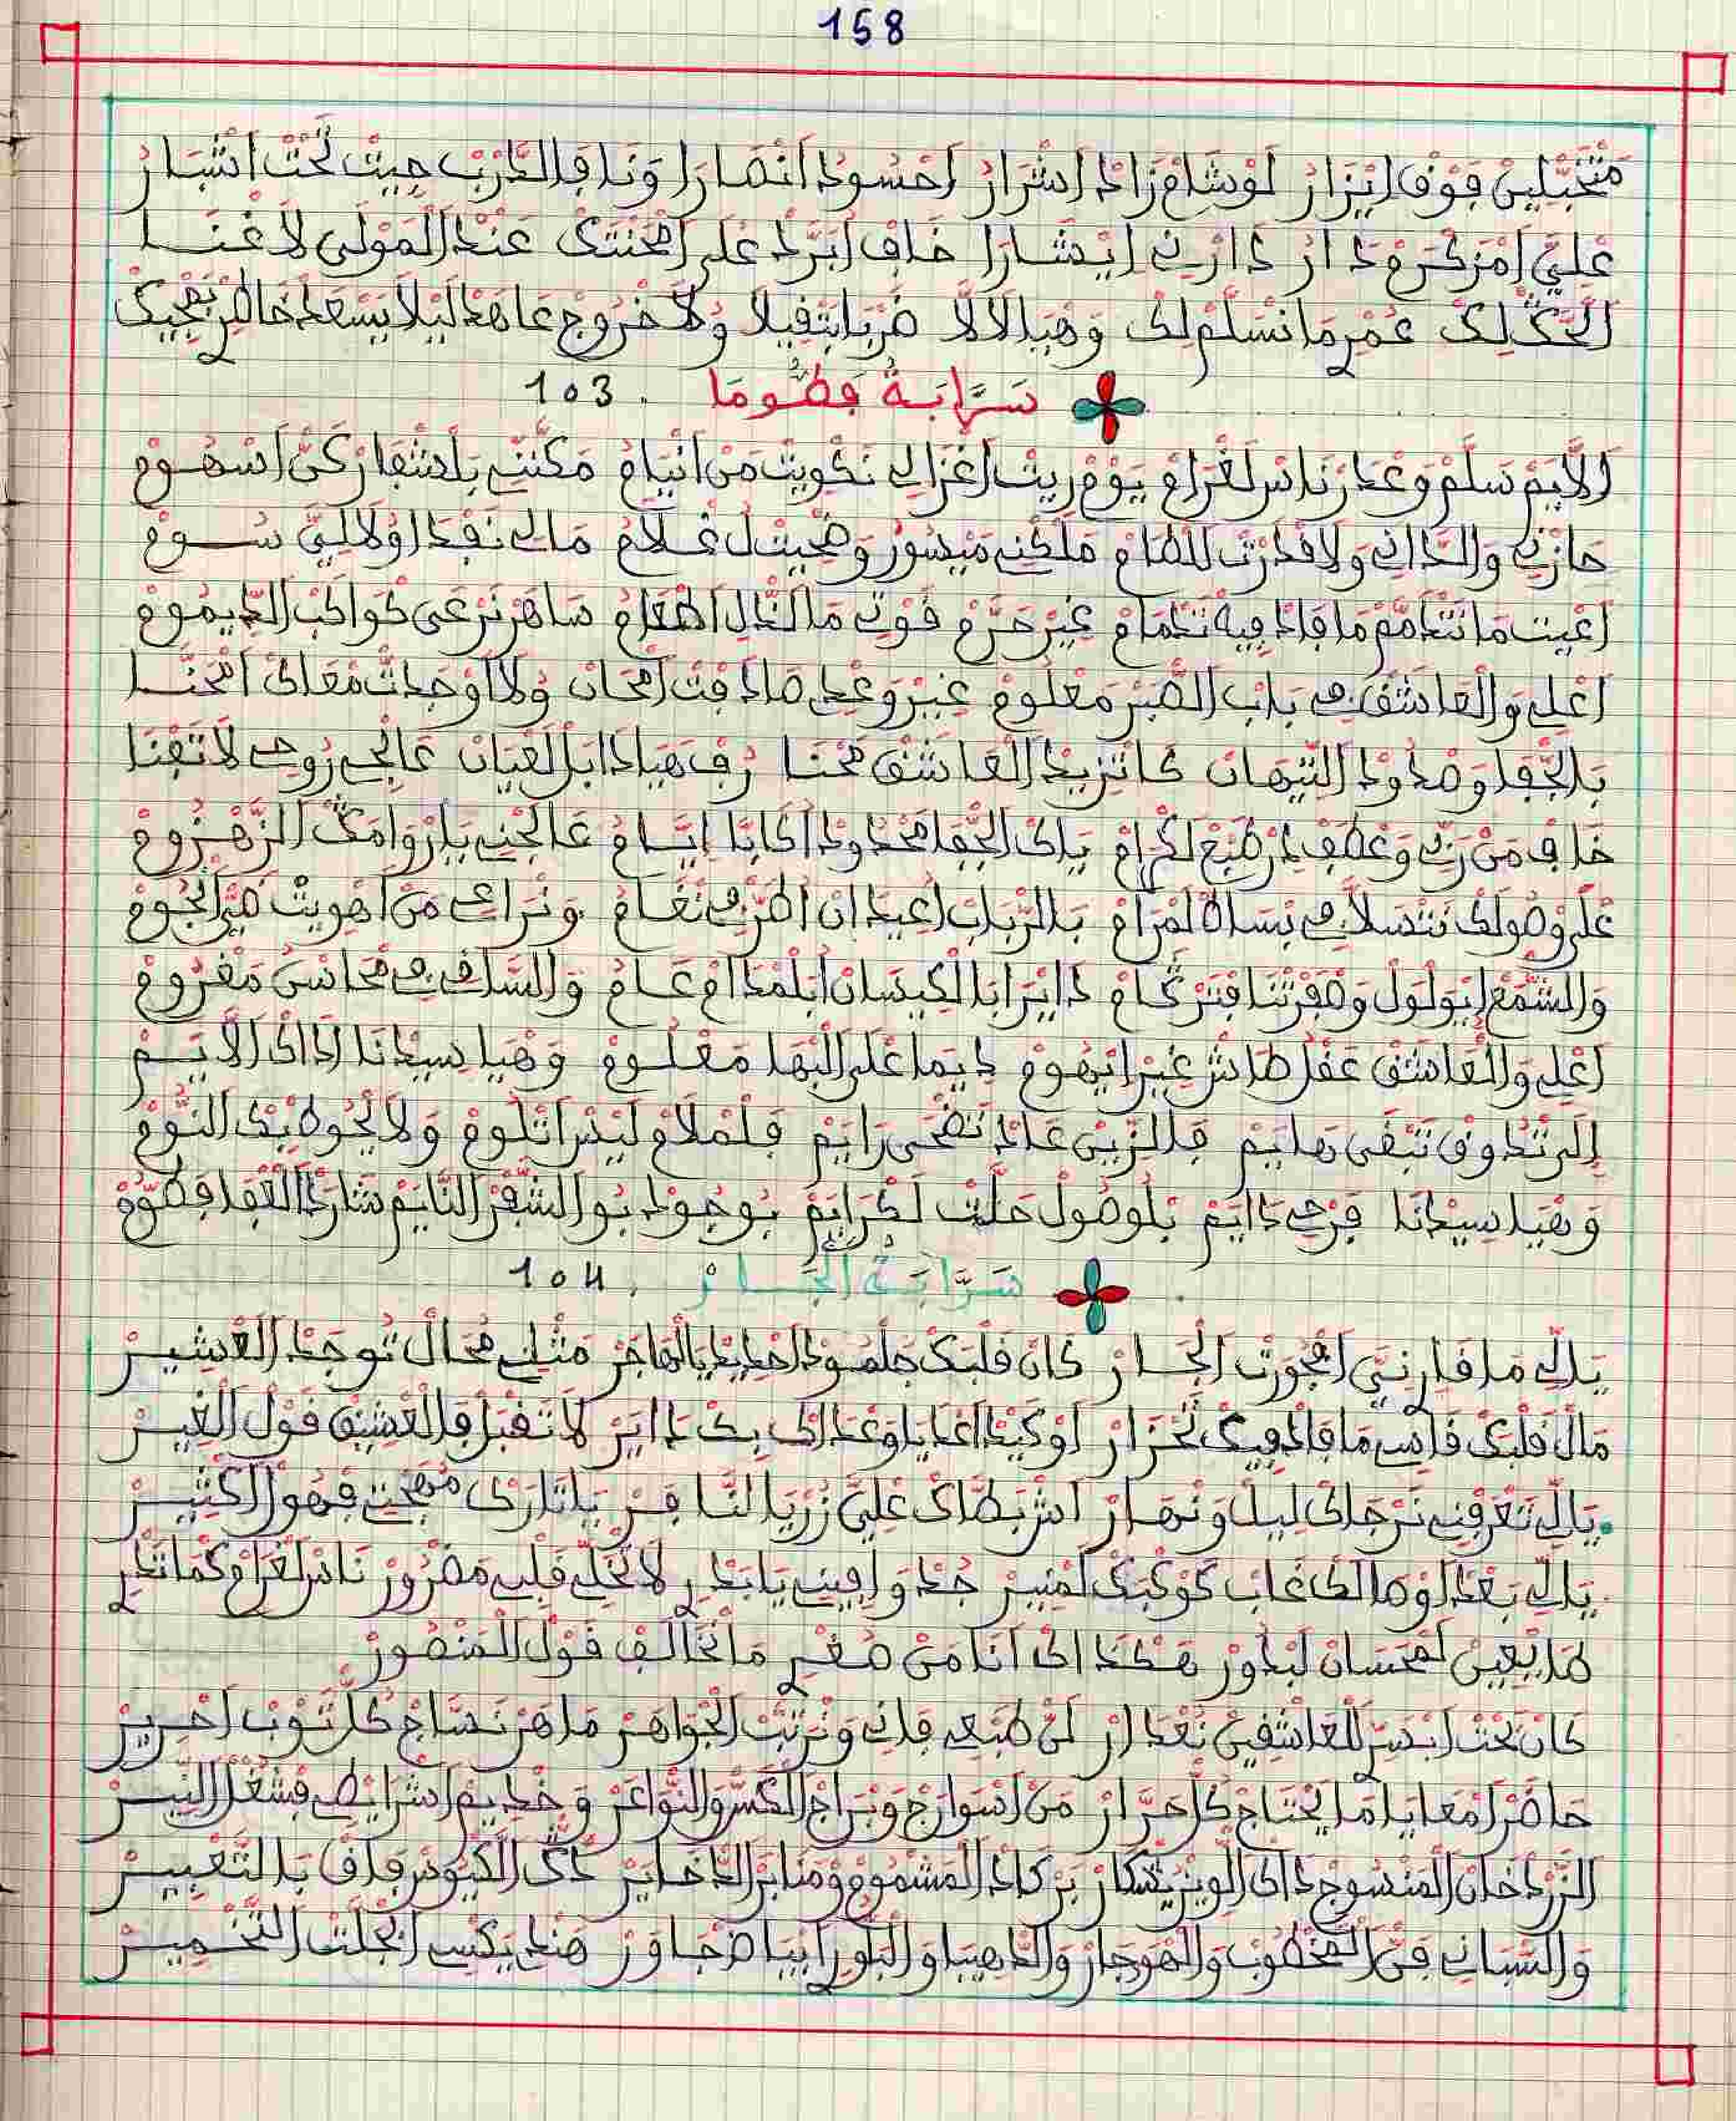 158
متخبلين فوق ايزار لوشام زاد اشرار احسود انصارا ونا فالدرب جيت تحت اشبار
عليّ امر كروه دار دارني ايشارا خاف ابرد على امحنتك عند المولى لا غنا
الحك لك عمري ما نسلم لك وهيا لالا لا ضربا بتفيلا ولا خروج عا هد ليلا يسعد خاطري بجيك
سرّابة فطّوما . 103
الايم سلم وعدر ناس لغرام يوم ريت اغزالي نكويت من انيام مكنني بلشفار كن اسهوم
حازني والداني ولا قدرت للطام ملكني ميسور وضحيت ل غلام مالي نفدا ولا ليّ سوم
اعيت ما نتدمم ما فاد فيه تدمام غير حرم قوتي ما لدّ ل اطعام ساهر نرعى كواكب الديموم
اعلي والعاشق في باب الصبر معلوم غير وعدي صادفت امحان ولا اوجدت معاك امحنا
بالجفا وصدود التيهان كاتزيد العاشق محنا رف هيا دابل لعيان عالج روحي لا تفنا
خاف من ربي وعطف يا طبع لكرام ياك الجفا محدود اكابا ايّام عالجني باروامك الزهزوم
على وصولك نتسلا في بساط لمرام بالرباب اعيدان اطرفي نغام ونراعي من اهويت ضي النجوم
والشمع ايولول وصفرتنا فترخام داير ابا لكيسان ابلمدام عام والساقي في محاسن مغروم
اعلي والعاشق عقل طاش غير ايهوم ديما على البها معلوم وهيا سيدنا اداك الايم
الى تدوق تبقى هايم فالزين عاد تضحى رايم فلملام ليس اتلوم ولا يحوط بك النوم
وهيا سيدنا فرحي دايم بلوصول حلت لكرايم بوجود بو الشفر النايم شارد العقا فطوم
سرّابة الجار . 104
يالي ما فارني امجورت الجار كان قلبك جلمود احديد يالهاجر مثلي محال توجد العشير
مال قلبك قاسي ما فاد فيك تحزار او كيد اعدايا وعداك بك داير لا تقبل فالعشيق قول الغير
يالي تعرفني نرجاك ليل ونهار اش بطاك عليّ زر يا النافر يا تارك مهجتي فهول الكثير
يالي بعد اوصالك غاب كوكبك لمنير جد وافيني يا بدري لا تخلي قلبي مضرور ناس لغرام كما تدري
هما يعين لمحسان لبدور هكداك انا من صغري ما نخالف قول المنصور
كان تحت ابدسر للعاشقين نعدار لن طبعي فاني ونرتب الجواهر ماهر نساج كل توب احرير
حاضر امعايا ما يحتاج كل حرار من اسوارج وبراج الكسر والنواعر وخديم اشرايطي فشغل النير
الزردخان المنسوج داك الويز بتكار بركاد المشموم ومنابر الدخاير داك الكيوس فاق بالتعبير
والتساني في المخطوب والموجار والدهيبا والبلور ابياض جاور هندي يكسي ابجلت التخمير